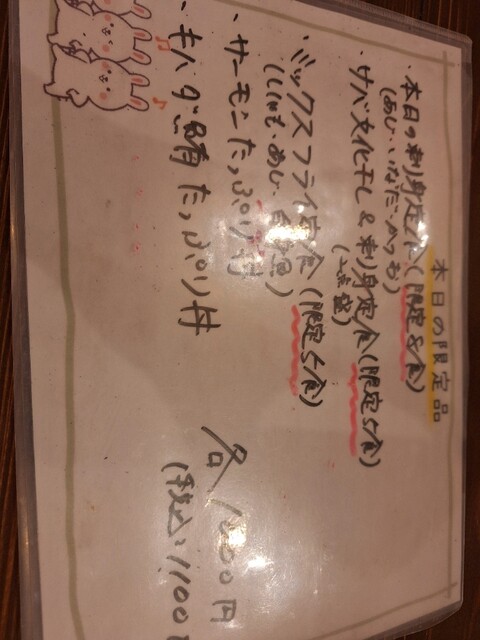 本日の限定品
・本日の刺身定食(限定8食)
(あじ・いなだ・かつお)
・サバ文化干し&刺身定食(限定5食)
(2点盛)
・ミックスフライ定食(限定5食)
(しいたけ・あじ・白魚)
・サーモンたっぷり丼
・キハダ鮪たっぷり丼
各1000円
(税込:1100